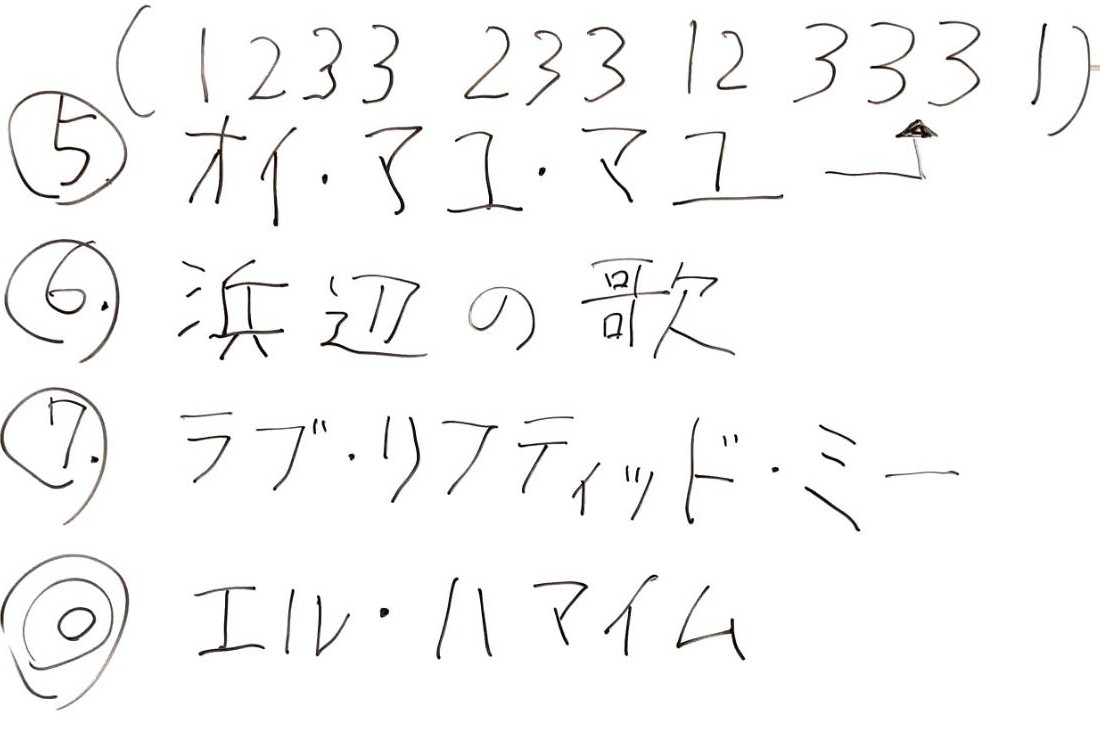 (1233 233 12 333 1)
⑤ オイ・アユ・マユ
⑥. 浜辺の歌
⑦. ラブ・リフティッド・ミー
◎ エル・ハマイム